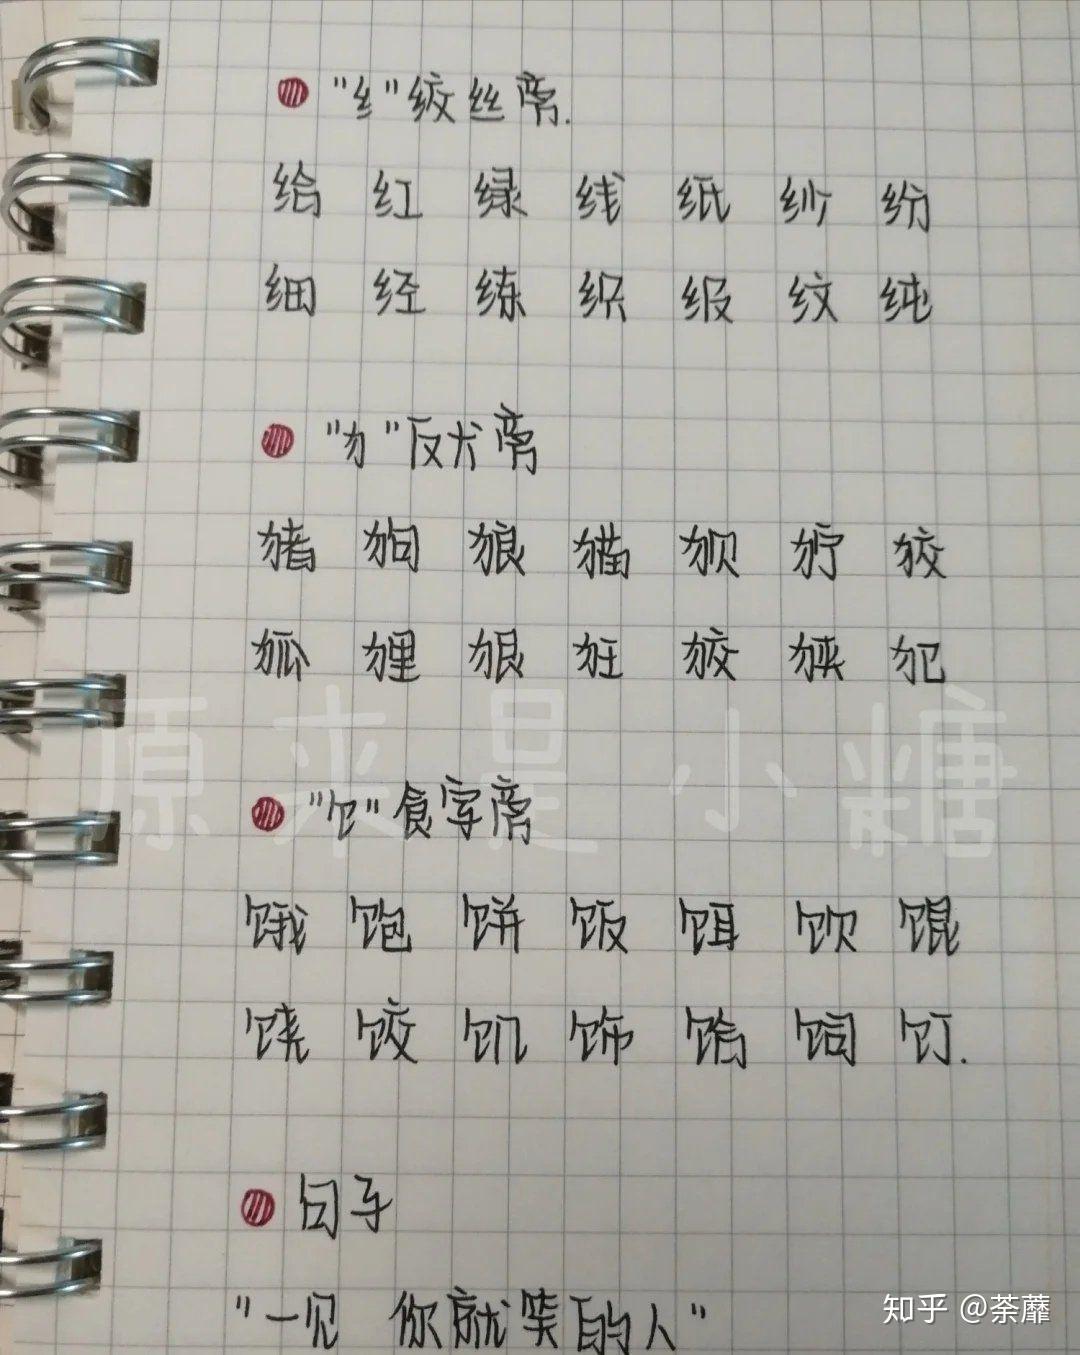 "纟"绞丝旁.
给 红 绿 线 纸 纱 纷
细 经 练 织 级 纹 纯
"犭"反犬旁
猪 狗 狼 猫 狈 狞 狡
狐 狸 狠 狂 狡 狭 犯
原来是小糖
"饣"食字旁
饿 饱 饼 饭 饵 饮 馄
饶 饺 饥 饰 饴 饲 饤.
句子
"一见 你就笑的人"
知乎 @荼蘼